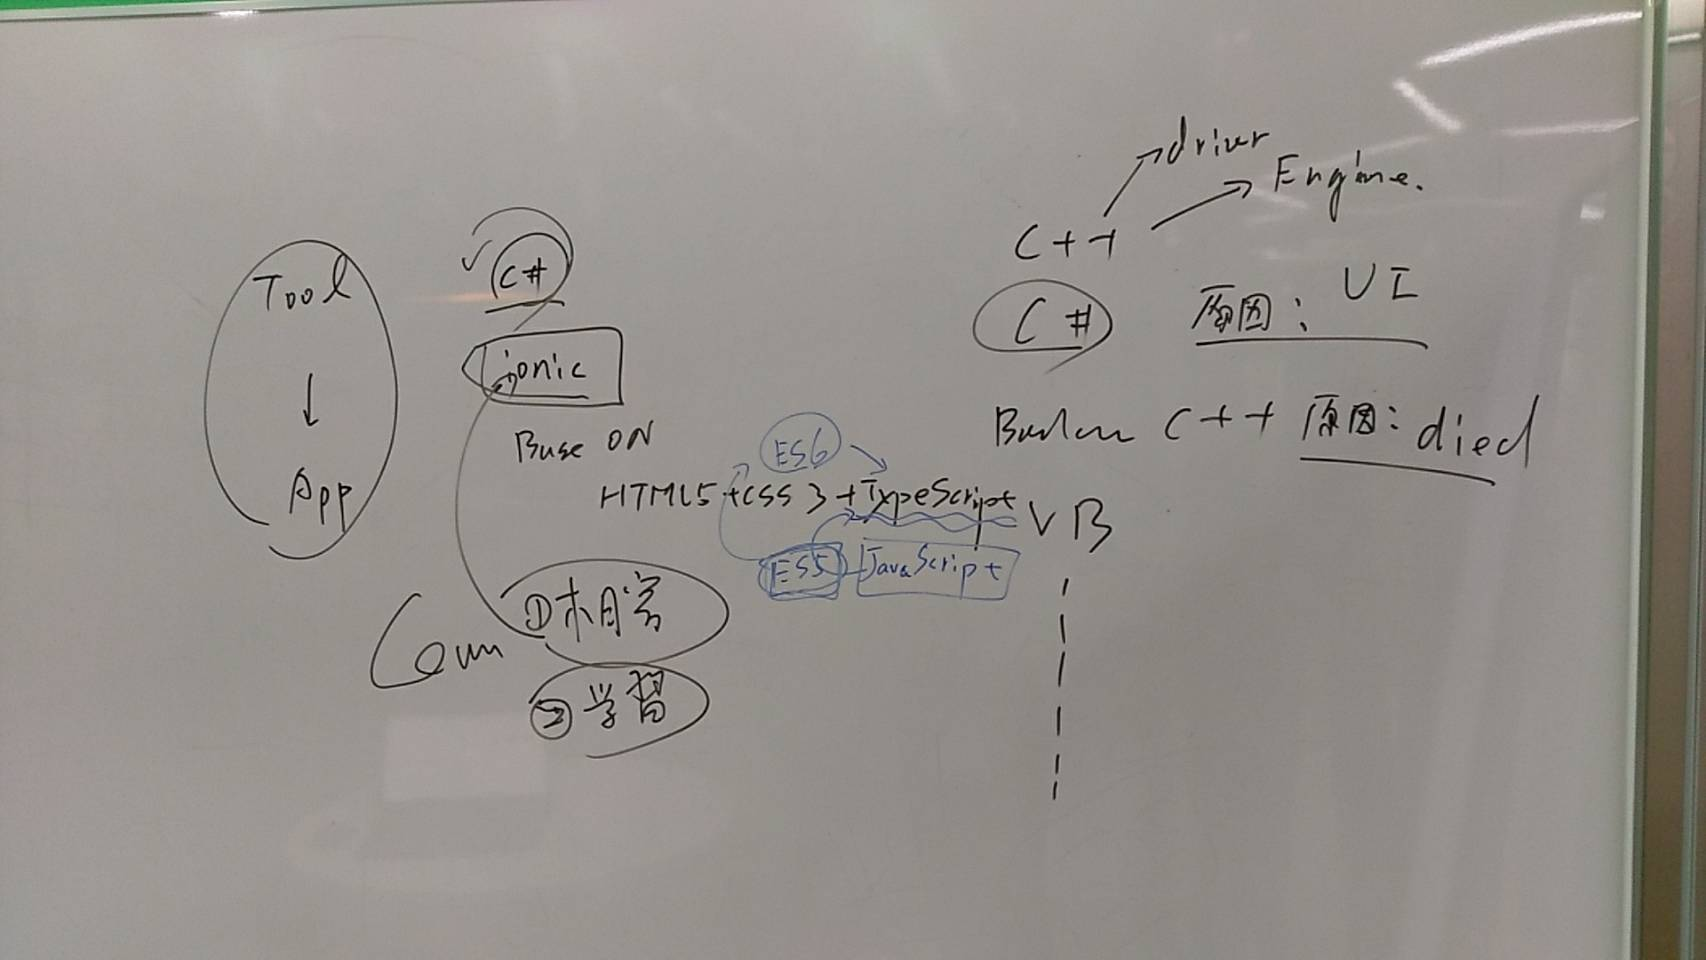 Tool
App
C#
ionic
Base ON
HTML5+CSS3+TypeScript
ES6
ES5 JavaScript
①相当
②学習
driver
Engine.
C++
C# 原因: UI
C++ 原因: died
VB